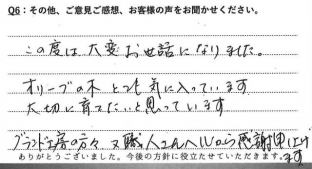 Q6：その他、ご意見ご感想、お客様の声をお聞かせください。
この度は大変お世話になりました。
オリーブの木 とても気に入っています
大切に育てたいと思っています
ブランド工房の方々 又 職人さんへ心から感謝申し上げます
ありがとうございました。今後の方針に役立たせていただきます。